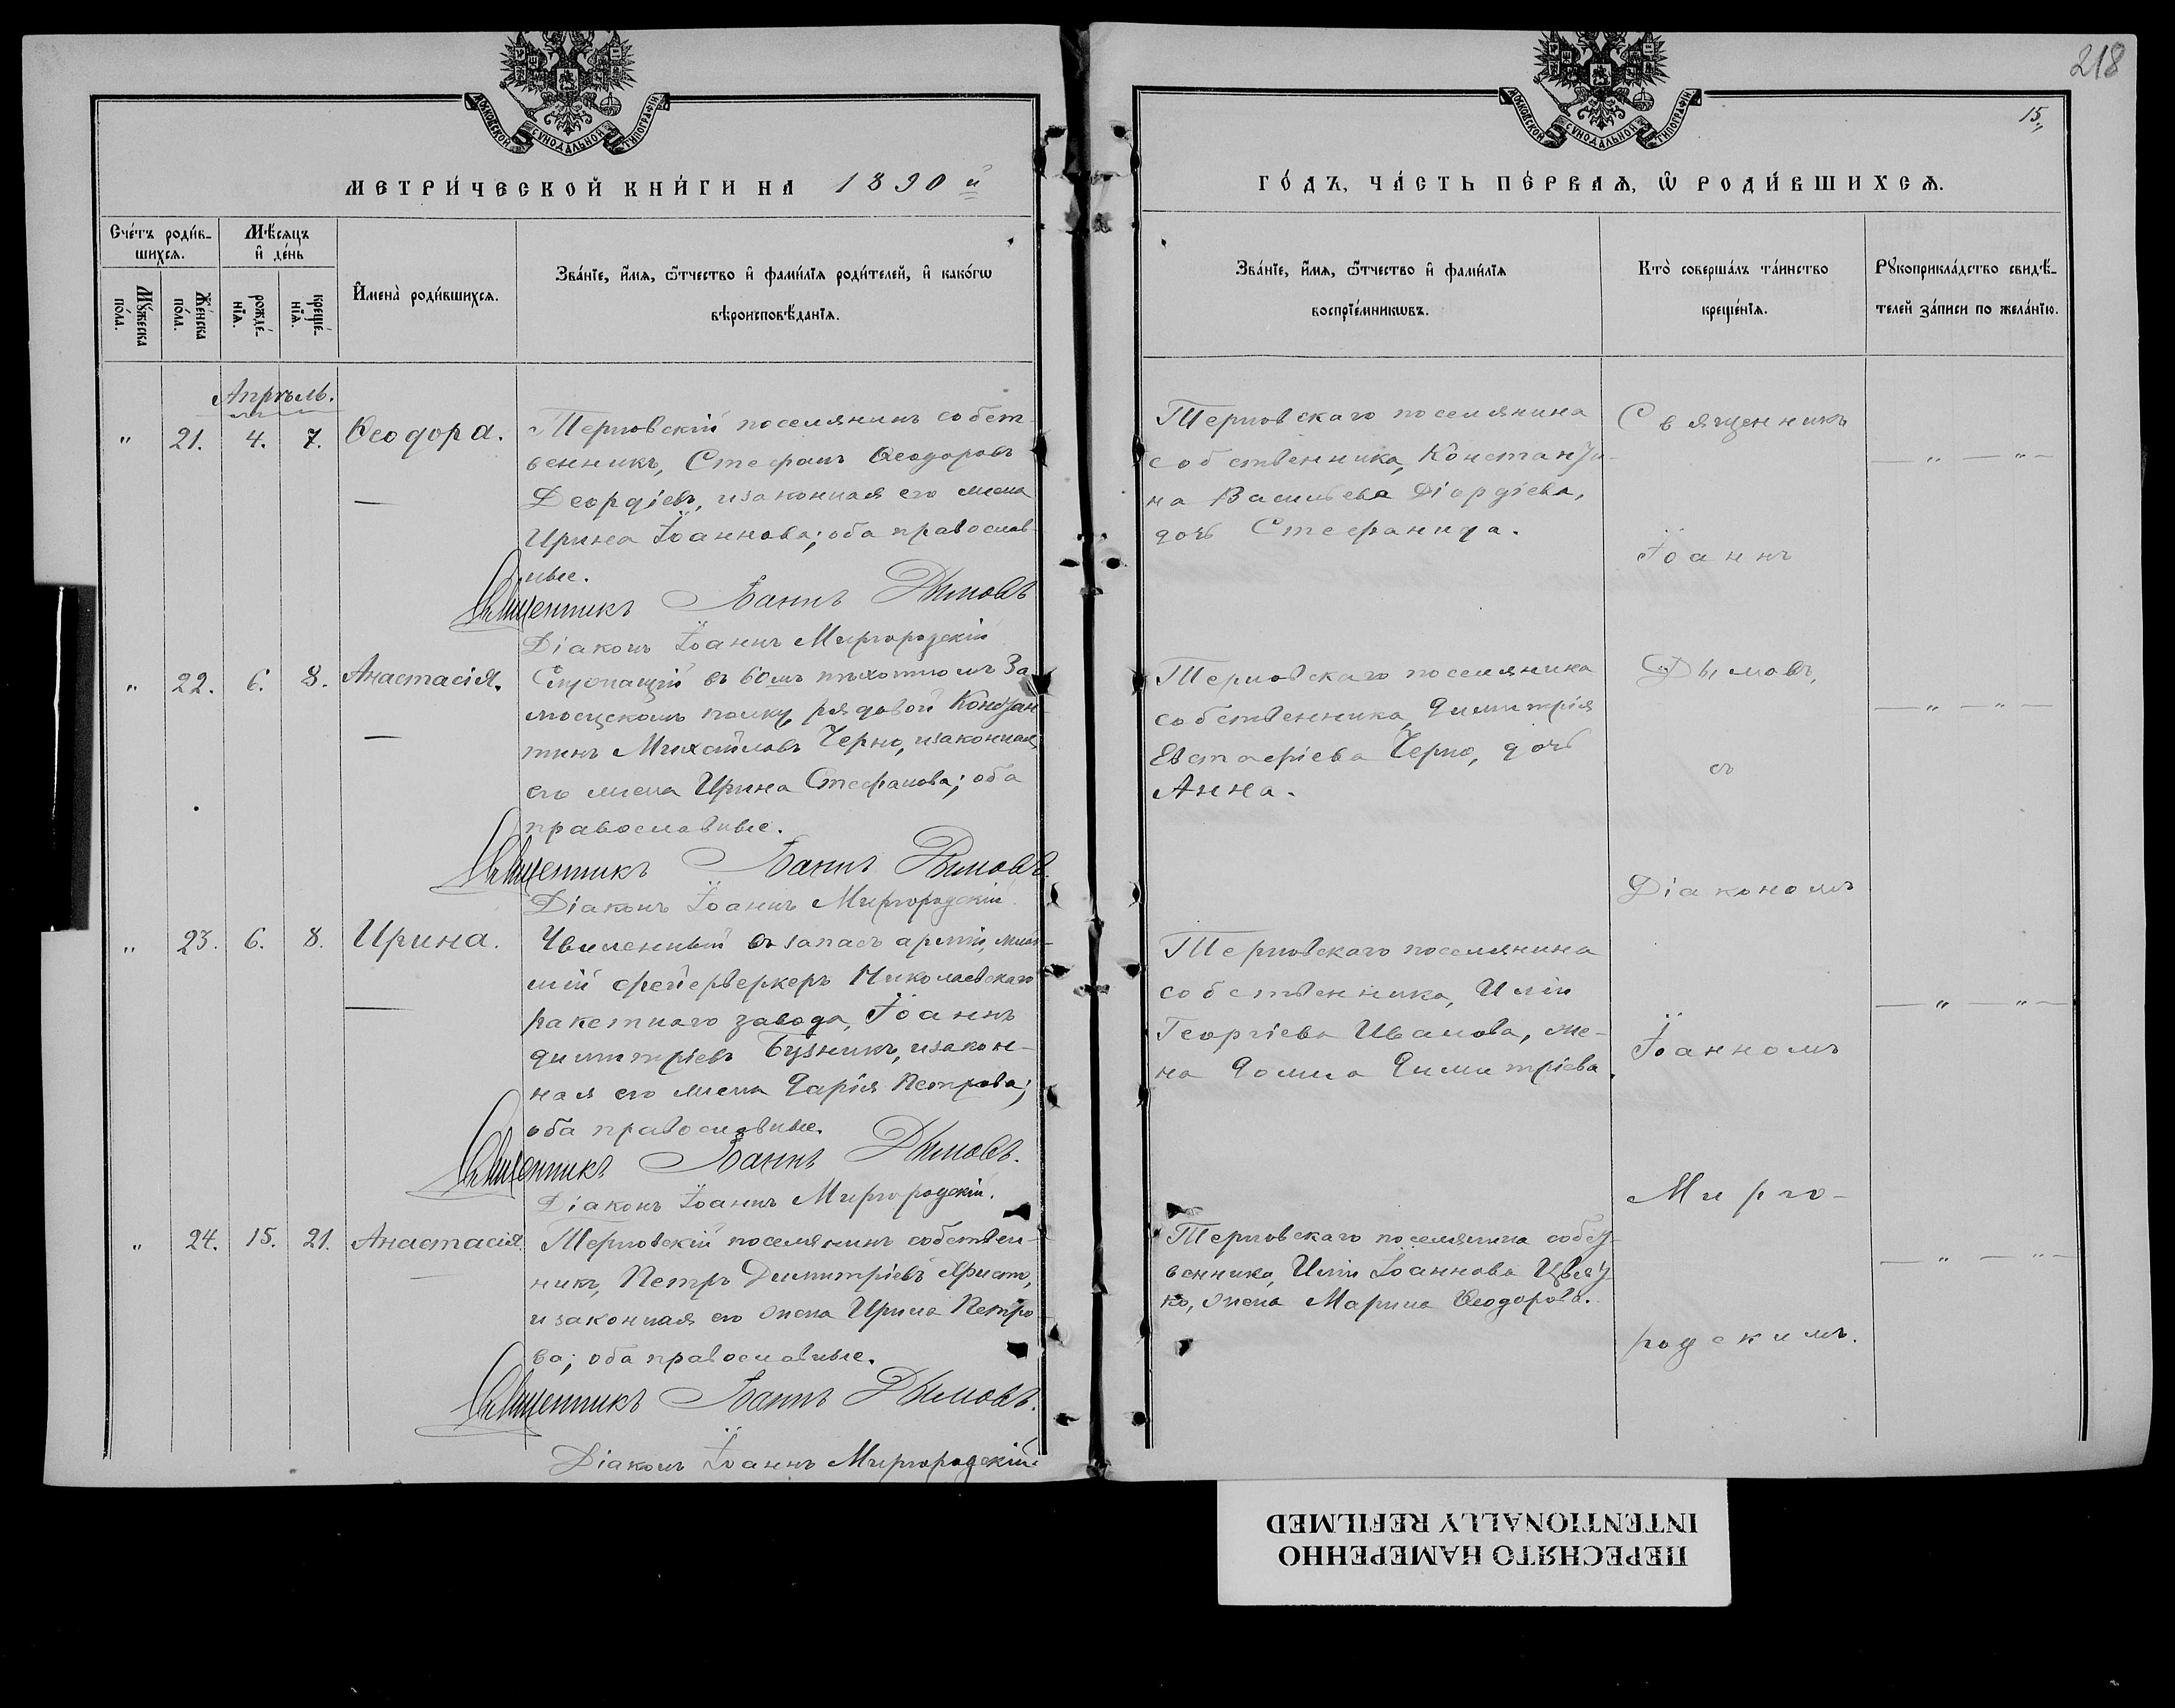 МОСКОВСКОЙ СѴНОДАЛЬНОЙ ТИПОГРАФІИ
МЕТРИ́ЧЕСКОЙ КНИ́ГИ НА 1890 й
Сче́тъ роди́в-
шихсѧ.
Мѣ́сѧцъ
и҆ де́нь
Мꙋ́жеска
по́ла.
Же́нска
по́ла.
рожде́-
нїѧ.
креще́-
нїѧ.
И҆мена̀ роди́вшихсѧ.
Зва́нїе, и҆́мѧ, ѻ҆́тчество и҆ фами́лїѧ роди́телей, и҆ како́гѡ
вѣроисповѣ́данїѧ.
Апрѣль.
" 21. 4. 7. Ѳеодора.
Терновскій поселянинъ собст
венникъ, Стефанъ Ѳеодоровъ
Деордіевъ, изаконная его жена
Ирина Іоаннова; оба православ-
ные.
Священникъ Іоаннъ Дымовъ
Діаконъ Іоаннъ Миргородскій
" 22. 6. 8. Анастасія.
Служащій въ 60мъ пѣхотномъ За
мосцскомъ полку, рядовой Констан-
тинъ Михайловъ Черно, изаконная
его жена Ирина Стефанова; оба
православные.
Священникъ Іоаннъ Дымовъ.
Діаконъ Іоаннъ Миргородскій.
" 23. 6. 8. Ирина.
Уволенный въ запасъ арміи, млад-
шій фейерверкеръ Николаевскаго
ракетнаго завода, Іоаннъ
Димитріевъ Бузникъ, изакон-
ная его жена Дарія Петрова;
оба православные.
Священникъ Іоаннъ Дымовъ.
Діаконъ Іоаннъ Миргородскій.
" 24. 15. 21. Анастасія.
Терновскій поселянинъ собствен-
никъ, Петръ Димитріевъ Христо,
изаконная его жена Ирина Петро
ва; оба православные.
Священникъ Іоаннъ Дымовъ.
Діаконъ Іоаннъ Миргородскій.
218
15,,
МОСКОВСКОЙ СѴНОДАЛЬНОЙ ТИПОГРАФІИ
ГО́ДЪ, ЧА́СТЬ ПЕ́РВАѦ, Ѡ҆ РОДИ́ВШИХСѦ.
Зва́нїе, и҆́мѧ, ѻ҆́тчество и҆ фами́лїѧ
воспрїе́мникѡвъ.
Кто̀ соверша́лъ та́инство
креще́нїѧ.
Рꙋкоприкла́дство свидѣ́-
телей за́писи по жела́нїю.
Терновскаго поселянина
собственника, Константи-
на Васильева Діордіева,
дочь Стефанида.
— " — " —
Терновскаго поселянина
собственника, Димитрія
Евстафіева Черно, дочь
Анна.
— " — " —
Терновскаго поселянина
собственника, Иліи
Георгіева Иванова, же-
на Домна Димитріева.
— " — " —
Терновскаго поселянина собст
венника, Иліи Іоаннова Цвят
ко, жена Марина Ѳеодорова.
— " — " —
Священникъ
Іоаннъ
Дымовъ,
съ
Діакономъ
Іоанномъ
Мирго-
родскимъ.
ПЕРЕСНЯТО НАМЕРЕННО
INTENTIONALLY REFILMED